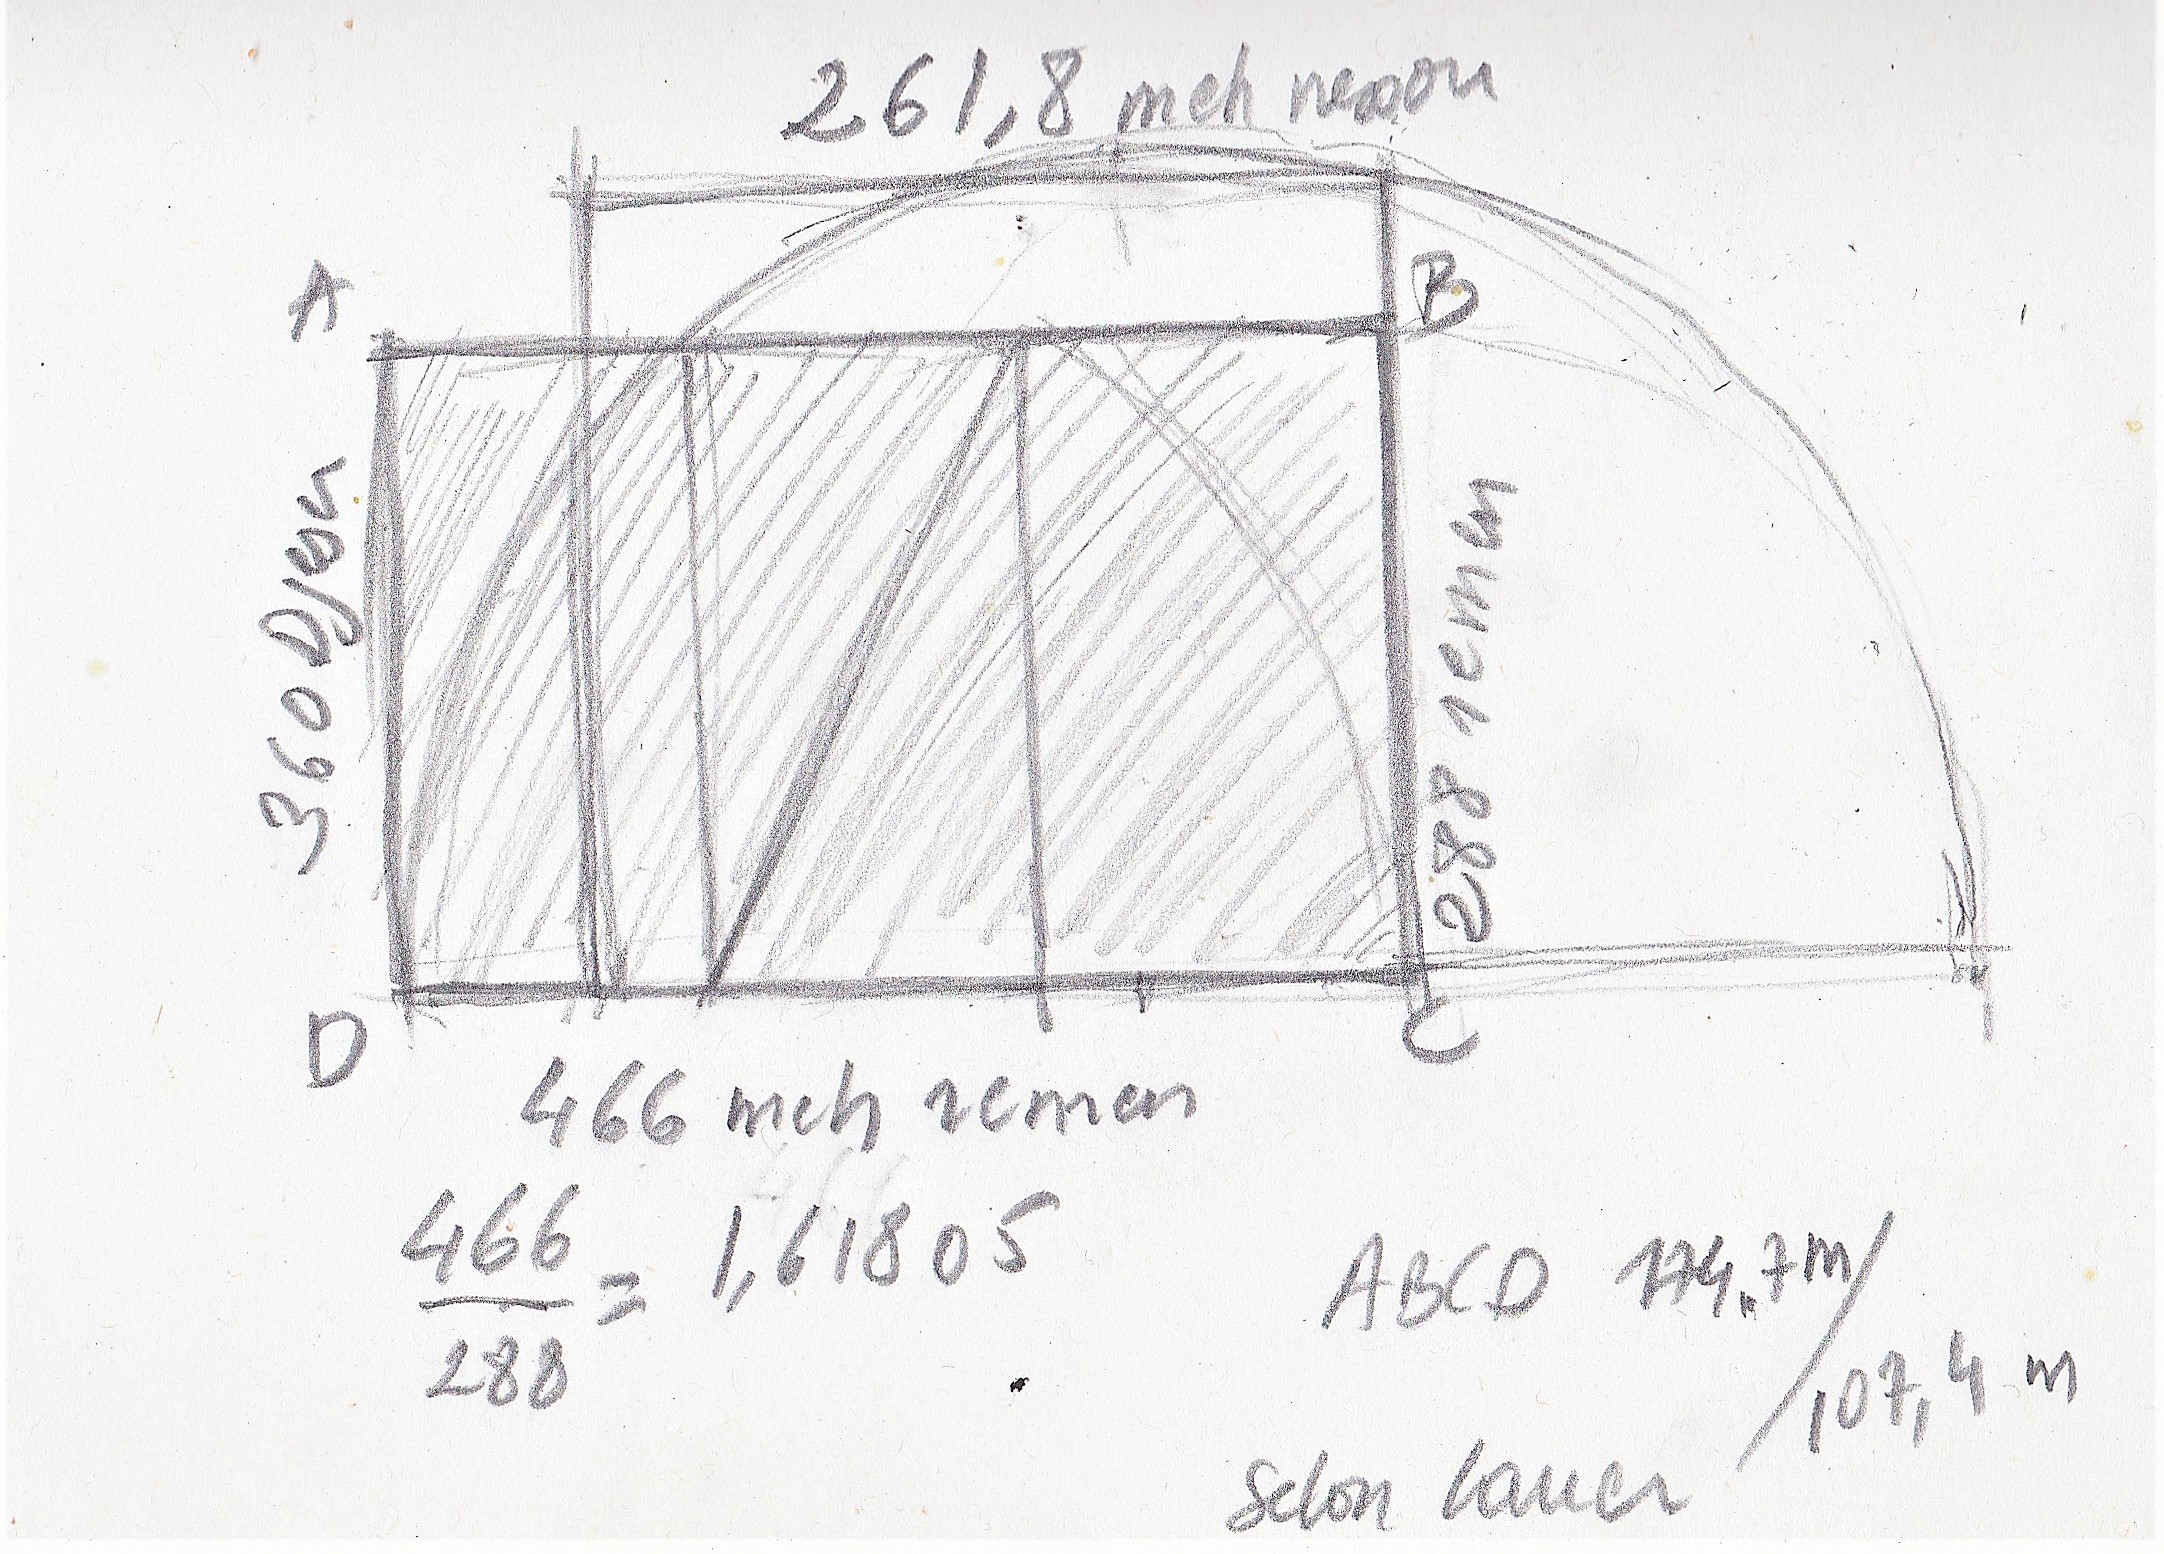 261,8 meh
A
B
360 Djser
288 remen
D
C
466 meh remen
466
288
= 1,61805
ABCD 174,7 m/
107,4 m
selon lauer